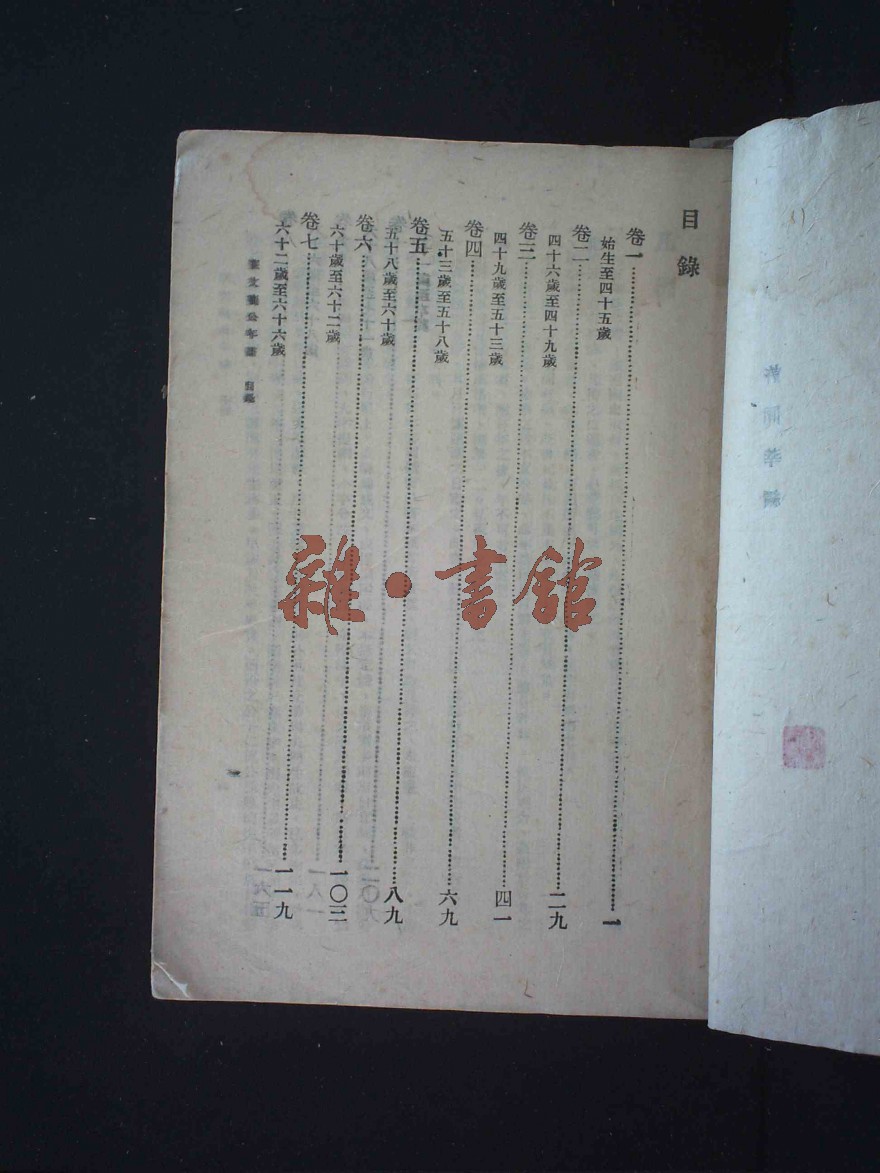 目錄
卷一……一
始生至四十五歲
卷二……二九
四十六歲至四十九歲
卷三……四一
四十九歲至五十三歲
卷四……六九
五十三歲至五十八歲
卷五……八九
五十八歲至六十歲
卷六……一〇三
六十歲至六十二歲
卷七……一一九
六十二歲至六十六歲
年譜 目錄
雜·書館